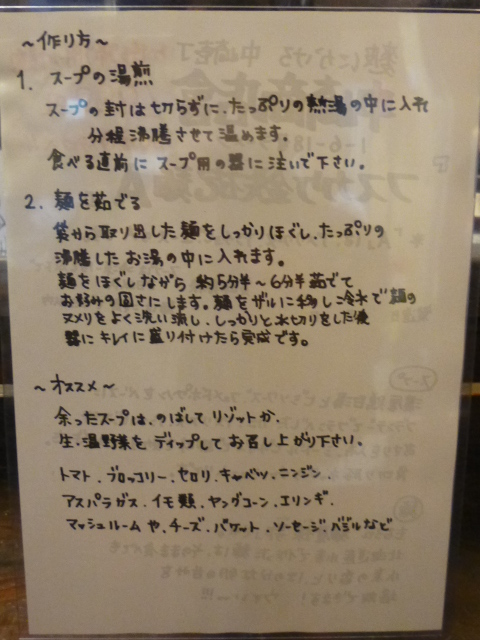 ～作り方～
1. スープの湯煎
スープの封は切らずに、たっぷりの熱湯の中に入れ
分程沸騰させて温めます。
食べる直前にスープ用の器に注いで下さい。
2. 麺を茹でる
袋から取り出した麺をしっかりほぐし、たっぷりの
沸騰したお湯の中に入れます。
麺をほぐしながら 約5分半～6分半茹でて
お好みの固さにします。麺をザルに移し冷水で麺の
ヌメリをよく洗い流し、しっかりと水切りをした後
器にキレイに盛り付けたら完成です。
～オススメ～
余ったスープは、のばしてリゾットか、
生・温野菜をディップしてお召し上がり下さい。
トマト、ブロッコリー、セロリ、キャベツ、ニンジン、
アスパラガス、イモ類、ヤングコーン、エリンギ、
マッシュルームや、チーズ、バケット、ソーセージ、バジルなど